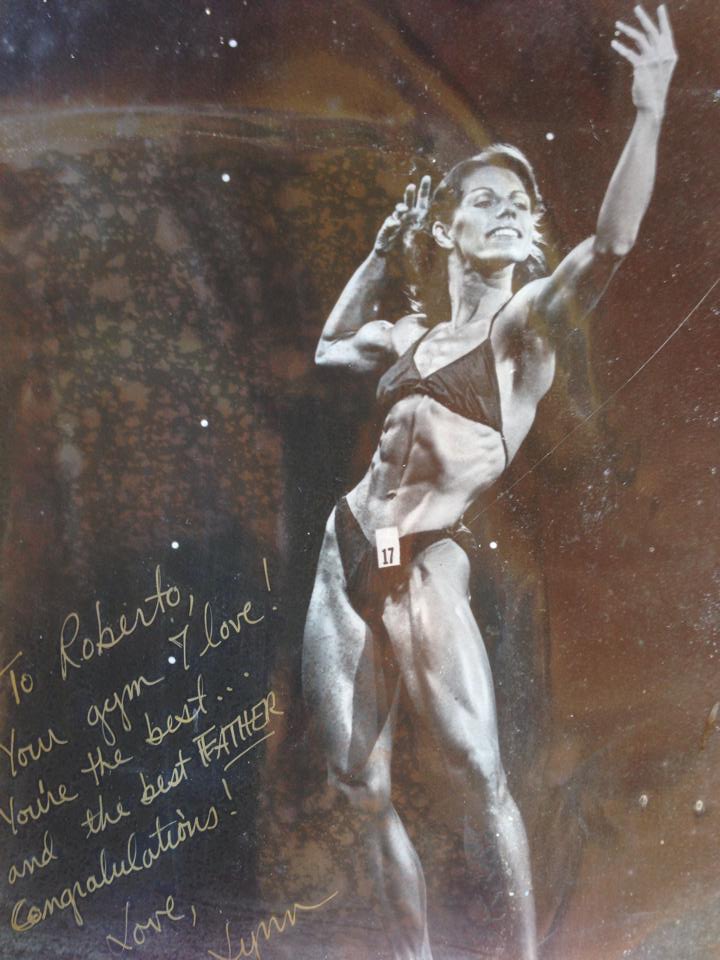 17
To Roberto,
Your gym I love!
You're the best...
and the best FATHER
Congratulations!
Love,
Lynn